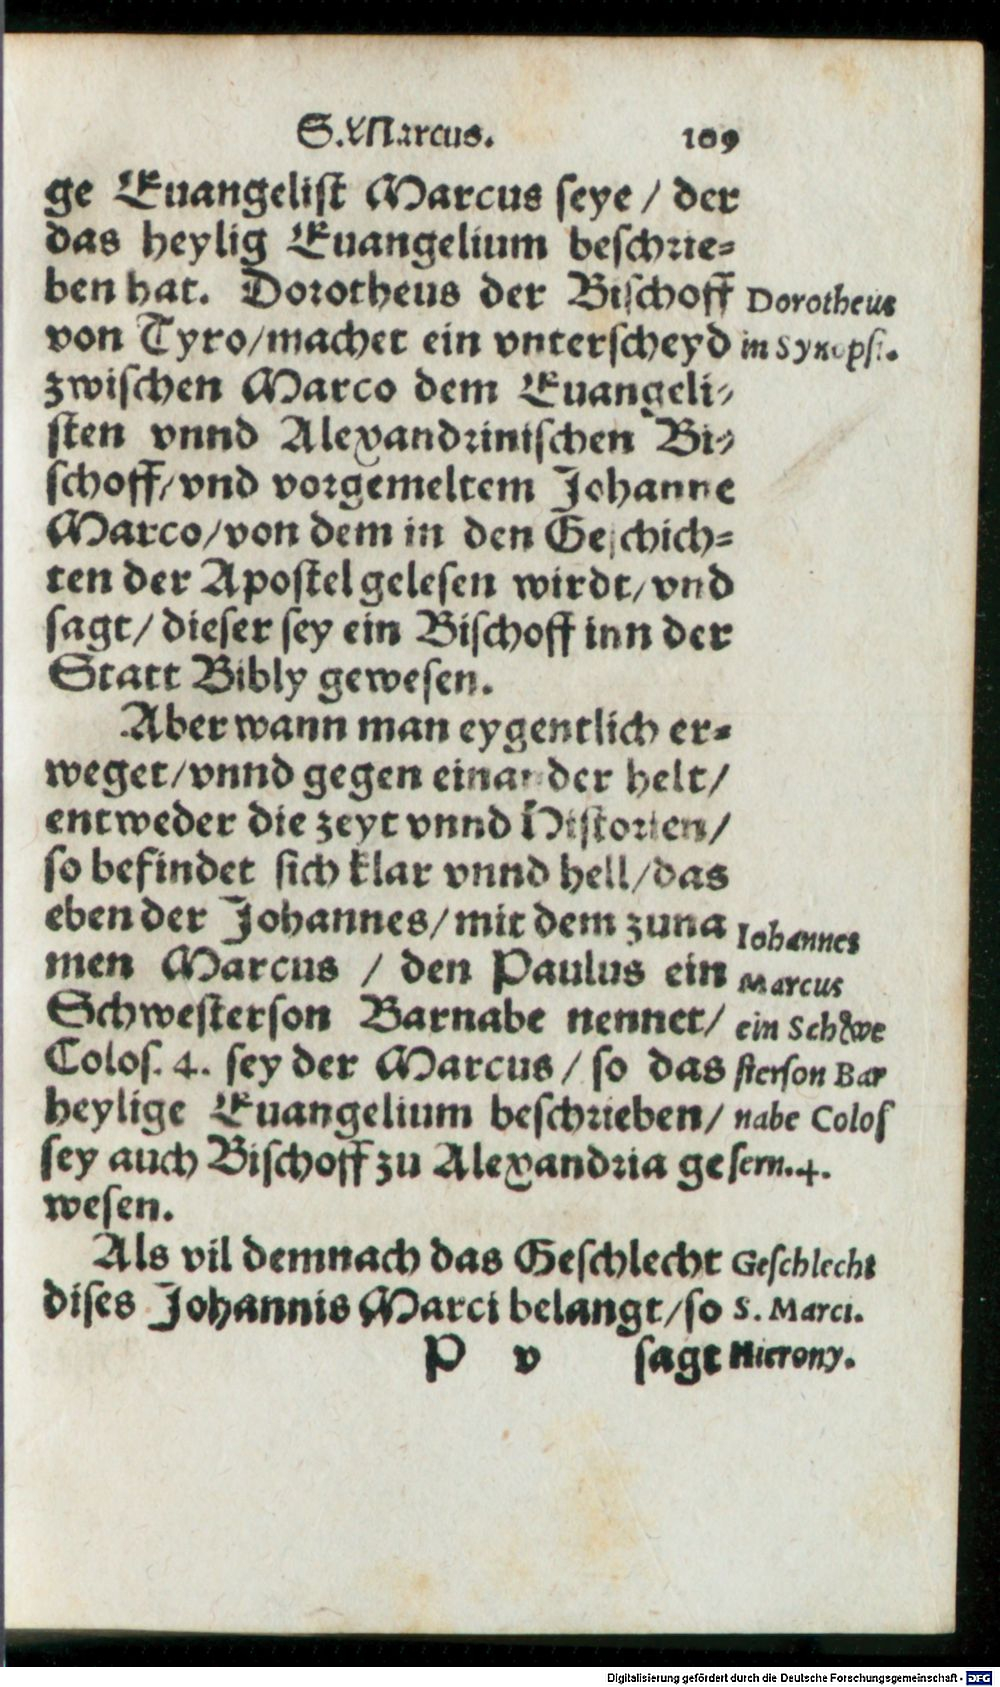 S. Marcus. 109
ge Euangelist Marcus seye / der
das heylig Euangelium beschrie=
ben hat. Dorotheus der Bischoff
von Tyro/machet ein vnterscheyd
zwischen Marco dem Euangeli=
sten vnnd Alexandrinischen Bi=
schoff/vnd vorgemeltem Johanne
Marco/von dem in den Geschich=
ten der Apostel gelesen wirdt/vnd
sagt/dieser sey ein Bischoff inn der
Statt Bibly gewesen.
Aber wann man eygentlich er=
weget/vnnd gegen einander helt/
entweder die zeyt vnnd Historien/
so befindet sich klar vnnd hell/das
eben der Johannes/mit dem zuna
men Marcus / den Paulus ein
Schwesterson Barnabe nennet/
Colos. 4. sey der Marcus / so das
heylige Euangelium beschrieben/
sey auch Bischoff zu Alexandria ge
wesen.
Als vil demnach das Geschlecht
dises Johannis Marci belangt/so
P v sagt
Dorotheus
in Synopsi.
Iohannes
Marcus
ein Schwe
sterson Bar
nabe Colos
sem. 4.
Geschlecht
S. Marci.
Hierony.
Digitalisierung gefördert durch die Deutsche Forschungsgemeinschaft - DFG